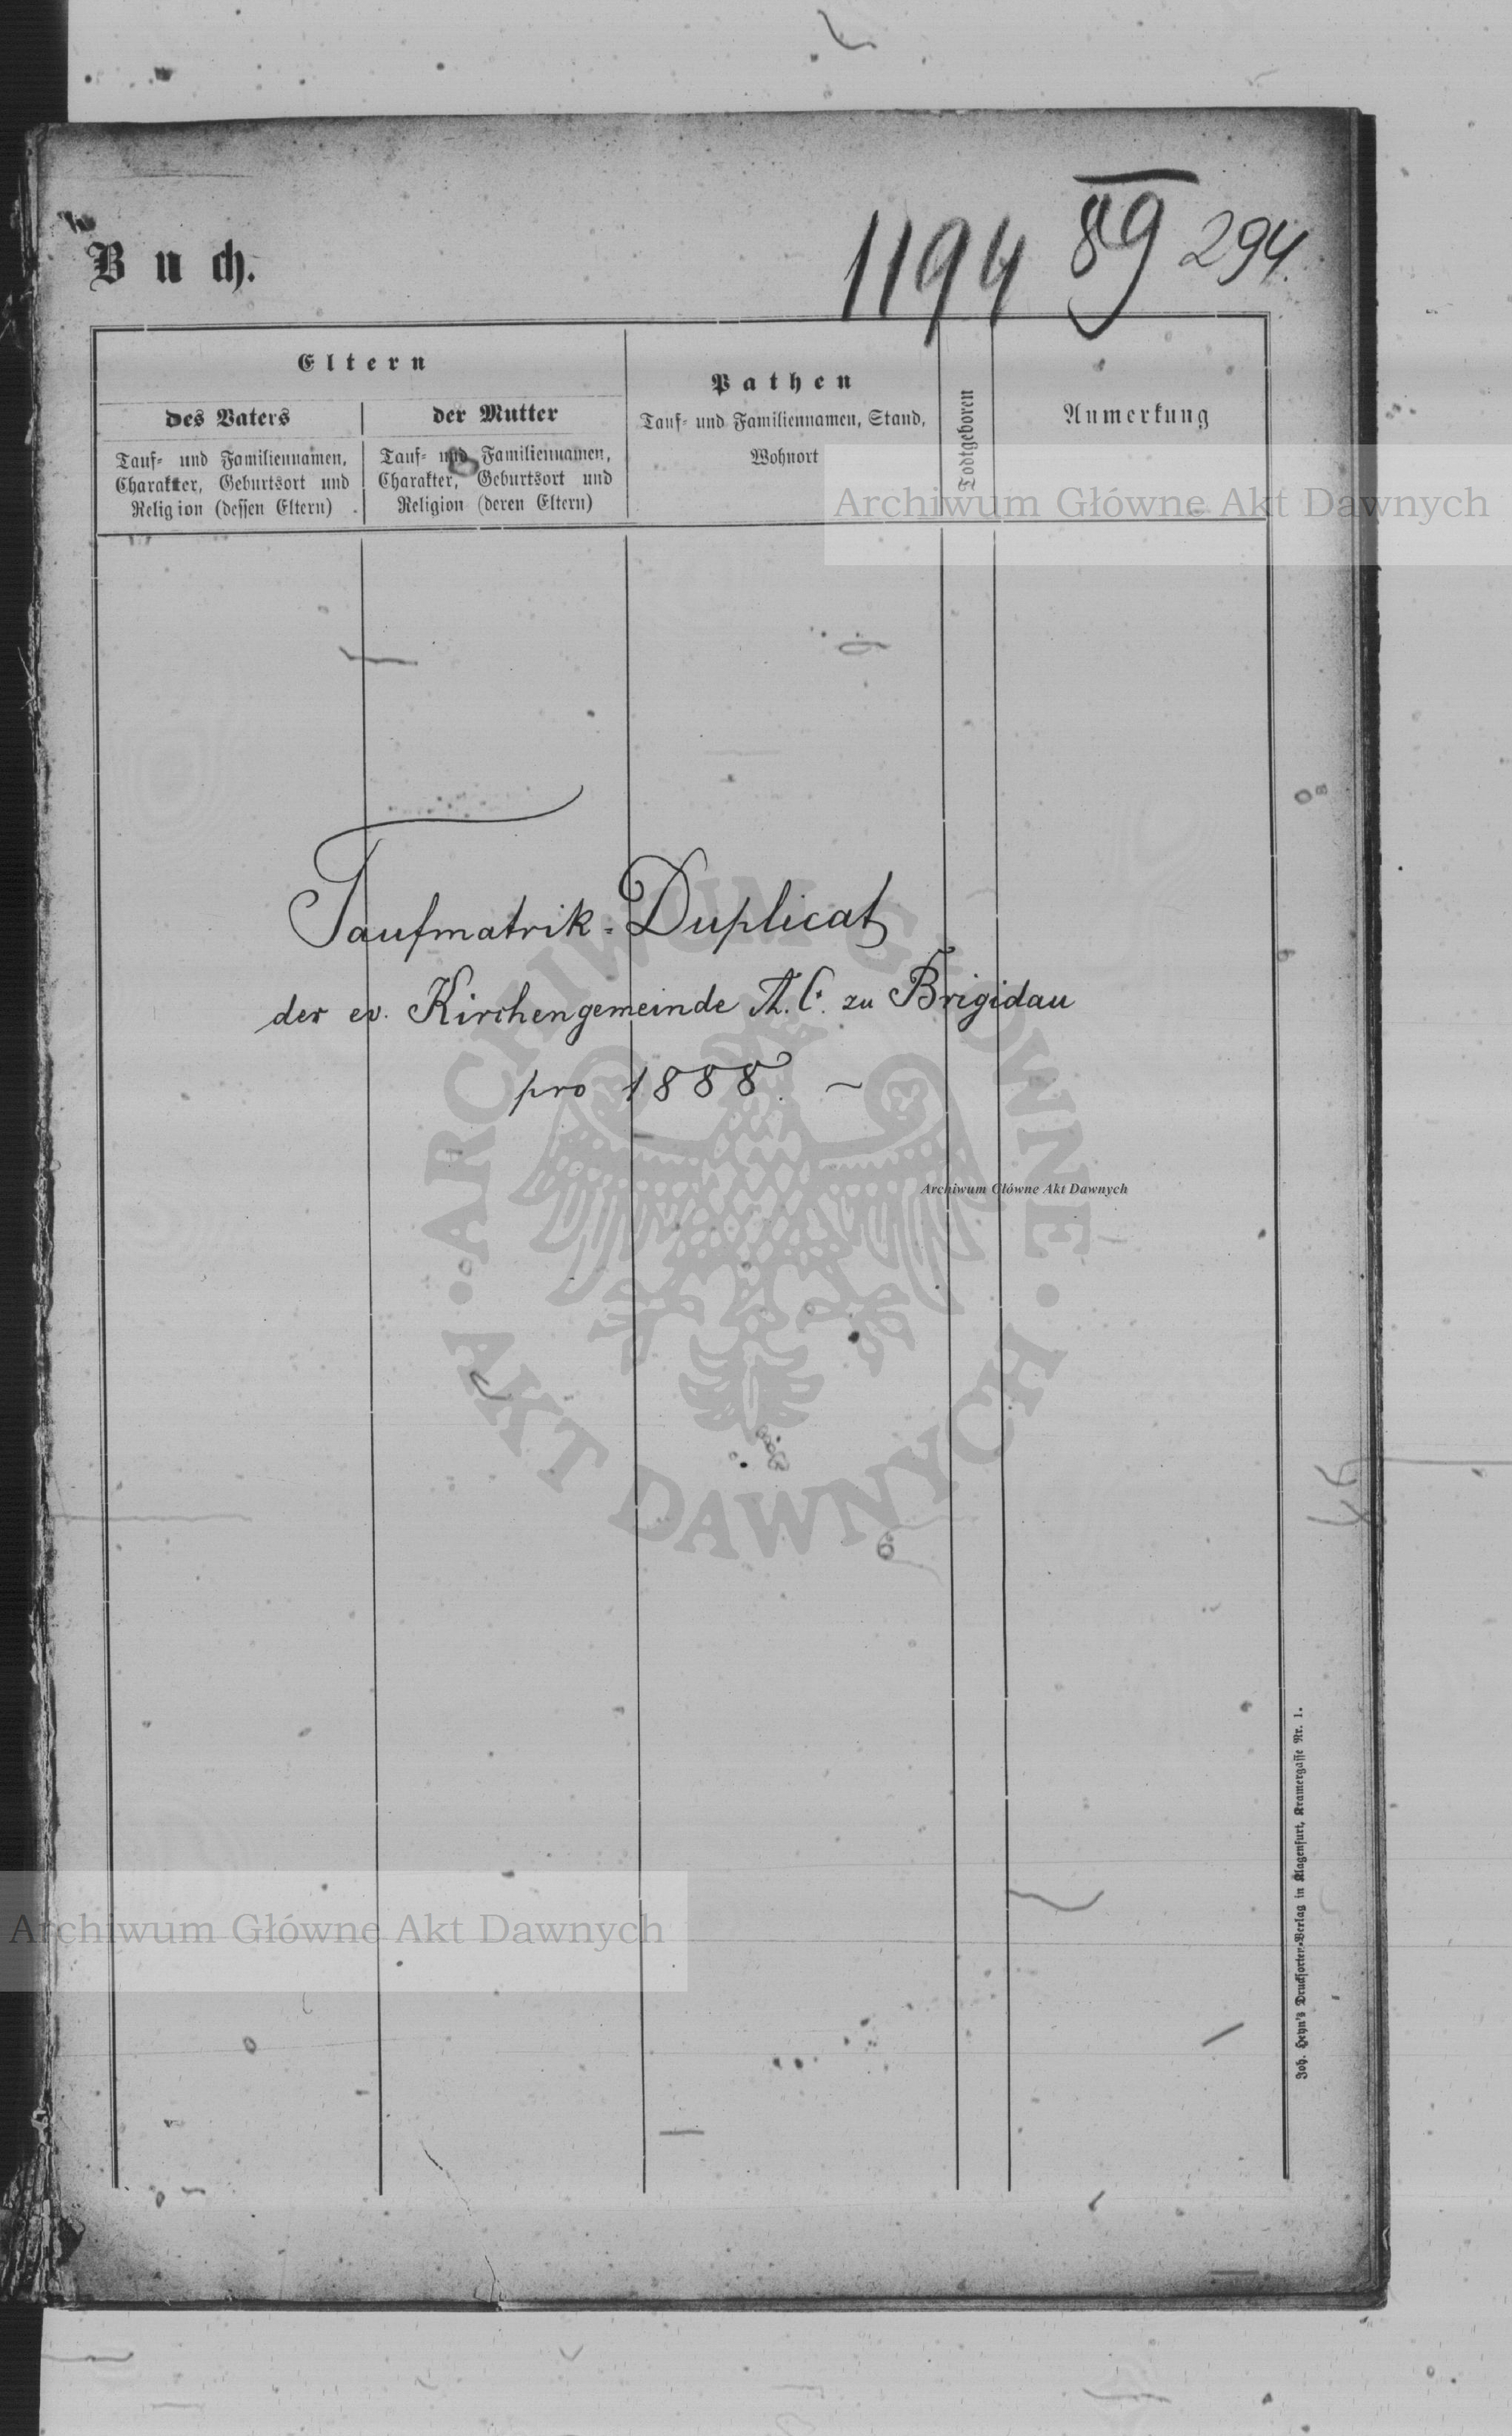 1194 89 294.
Buch.
Eltern
des Vaters
der Mutter
Tauf- und Familiennamen,
Charakter, Geburtsort und
Religion (dessen Eltern)
Tauf- und Familiennamen,
Charakter, Geburtsort und
Religion (deren Eltern)
Pathen
Tauf- und Familiennamen, Stand,
Wohnort
Todtgeboren
Anmerkung
Archiwum Główne Akt Dawnych
Taufmatrik-Duplicat
der ev. Kirchengemeinde A. C. zu Brigidau
pro 1888.
Archiwum Główne Akt Dawnych
ARCHIWUM GŁÓWNE
AKT DAWNYCH
Joh. Heyn's Drucksorten-Verlag in Klagenfurt, Kramergasse Nr. 1.
Archiwum Główne Akt Dawnych